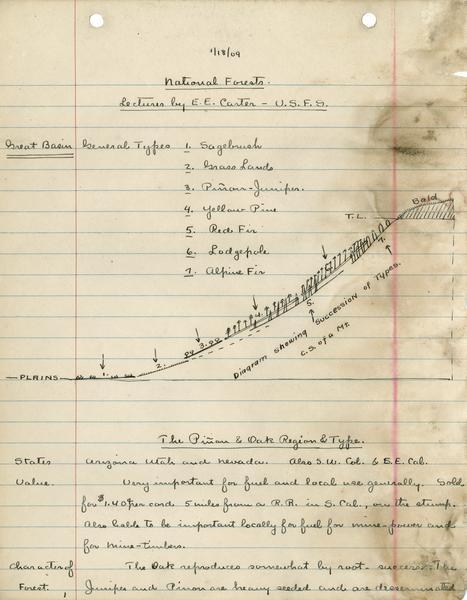 1/18/09
National Forests.
Lectures by E.E. Carter - U.S.F.S.
Great Basin General Types 1. Sagebrush
2. Grass Lands
3. Piñon-Juniper.
4. Yellow Pine
5. Red Fir
6. Lodgepole
7. Alpine Fir
Bald
T.L.
7.
6.
5.
4.
3.
2.
1.
Diagram showing Succession of Types.
C.S. of a Mt.
PLAINS
The Piñon & Oak Region & Type.
States Arizona Utah and Nevada. Also S.W. Col. & S.E. Cal.
Value. Very important for fuel and local use generally. Sold
for $1.40 per cord 5 miles from a R.R. in S. Cal., on the stump.
Also liable to be important locally for fuel for mine-power and
for mine-timbers.
Character of The Oak reproduces somewhat by root- The
Forest. Juniper and Pinon are heavy seeded and are disseminated